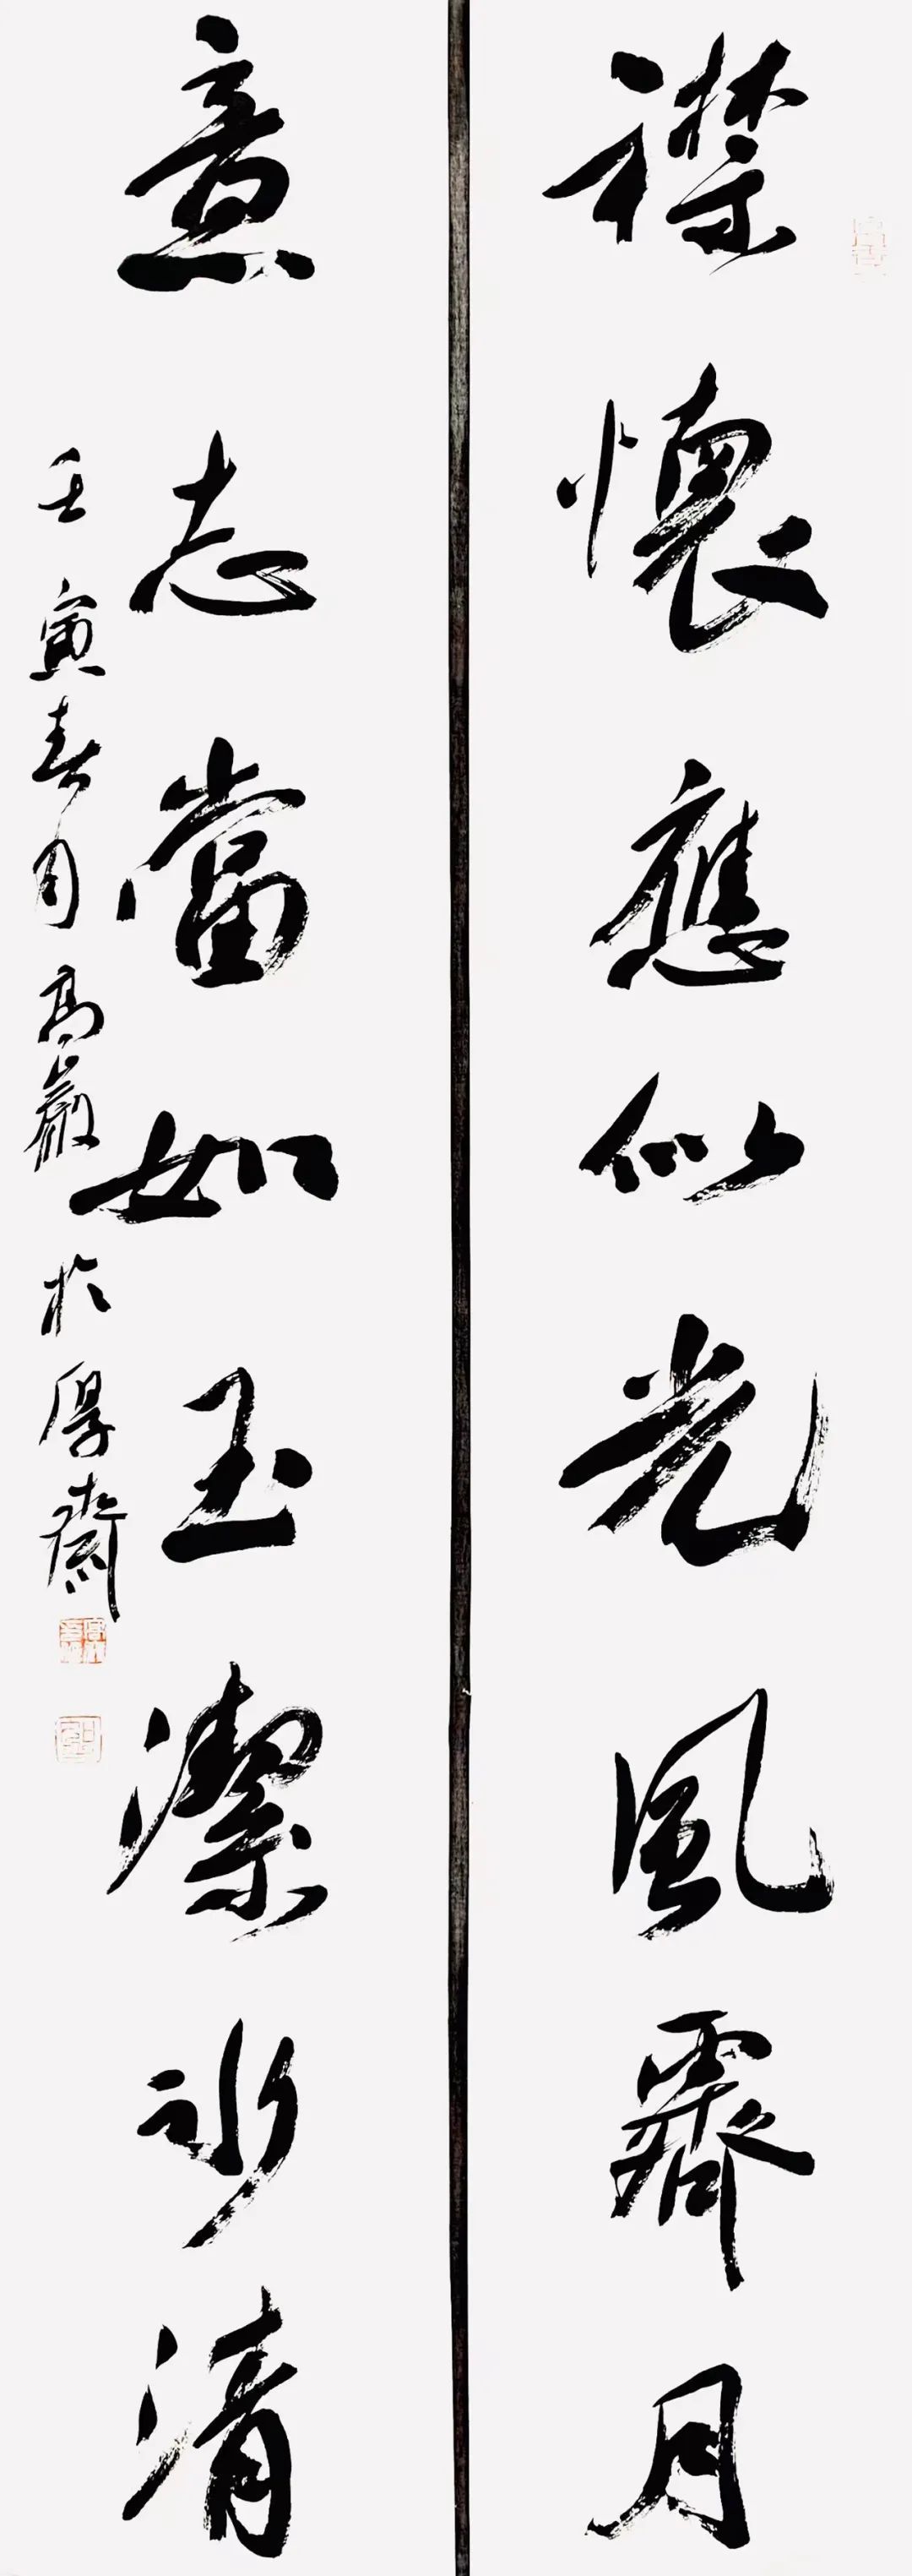 襟懷應似光風霽月
意志當如玉潔冰清
壬寅春月高嚴於厚齋